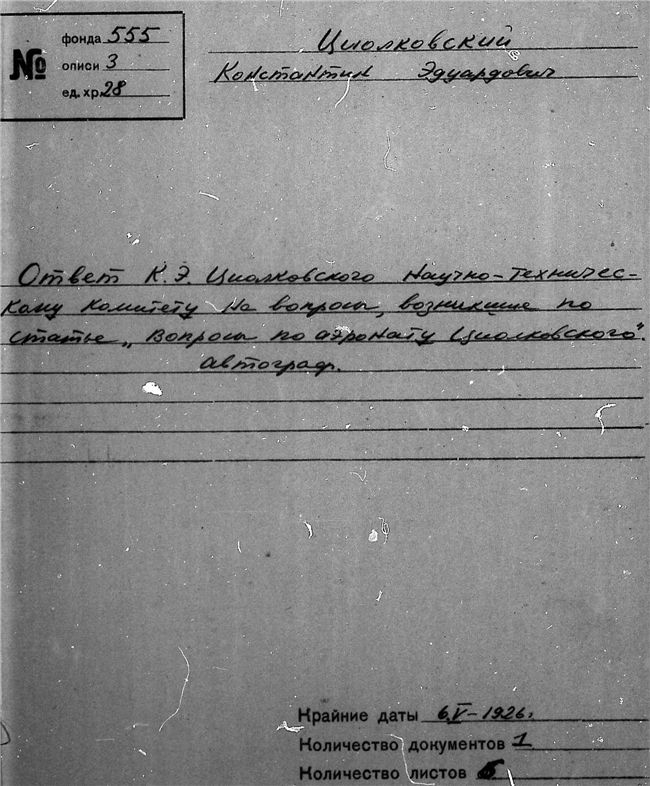 №
фонда 555
описи 3
ед. хр. 28
Циолковский
Константин Эдуардович
Ответ К.Э. Циолковского Научно-техничес-
кому комитету на вопросы, возникшие по
статье „Вопросы по аэронату Циолковского".
Автограф.
Крайние даты 6.V-1926г.
Количество документов 1
Количество листов